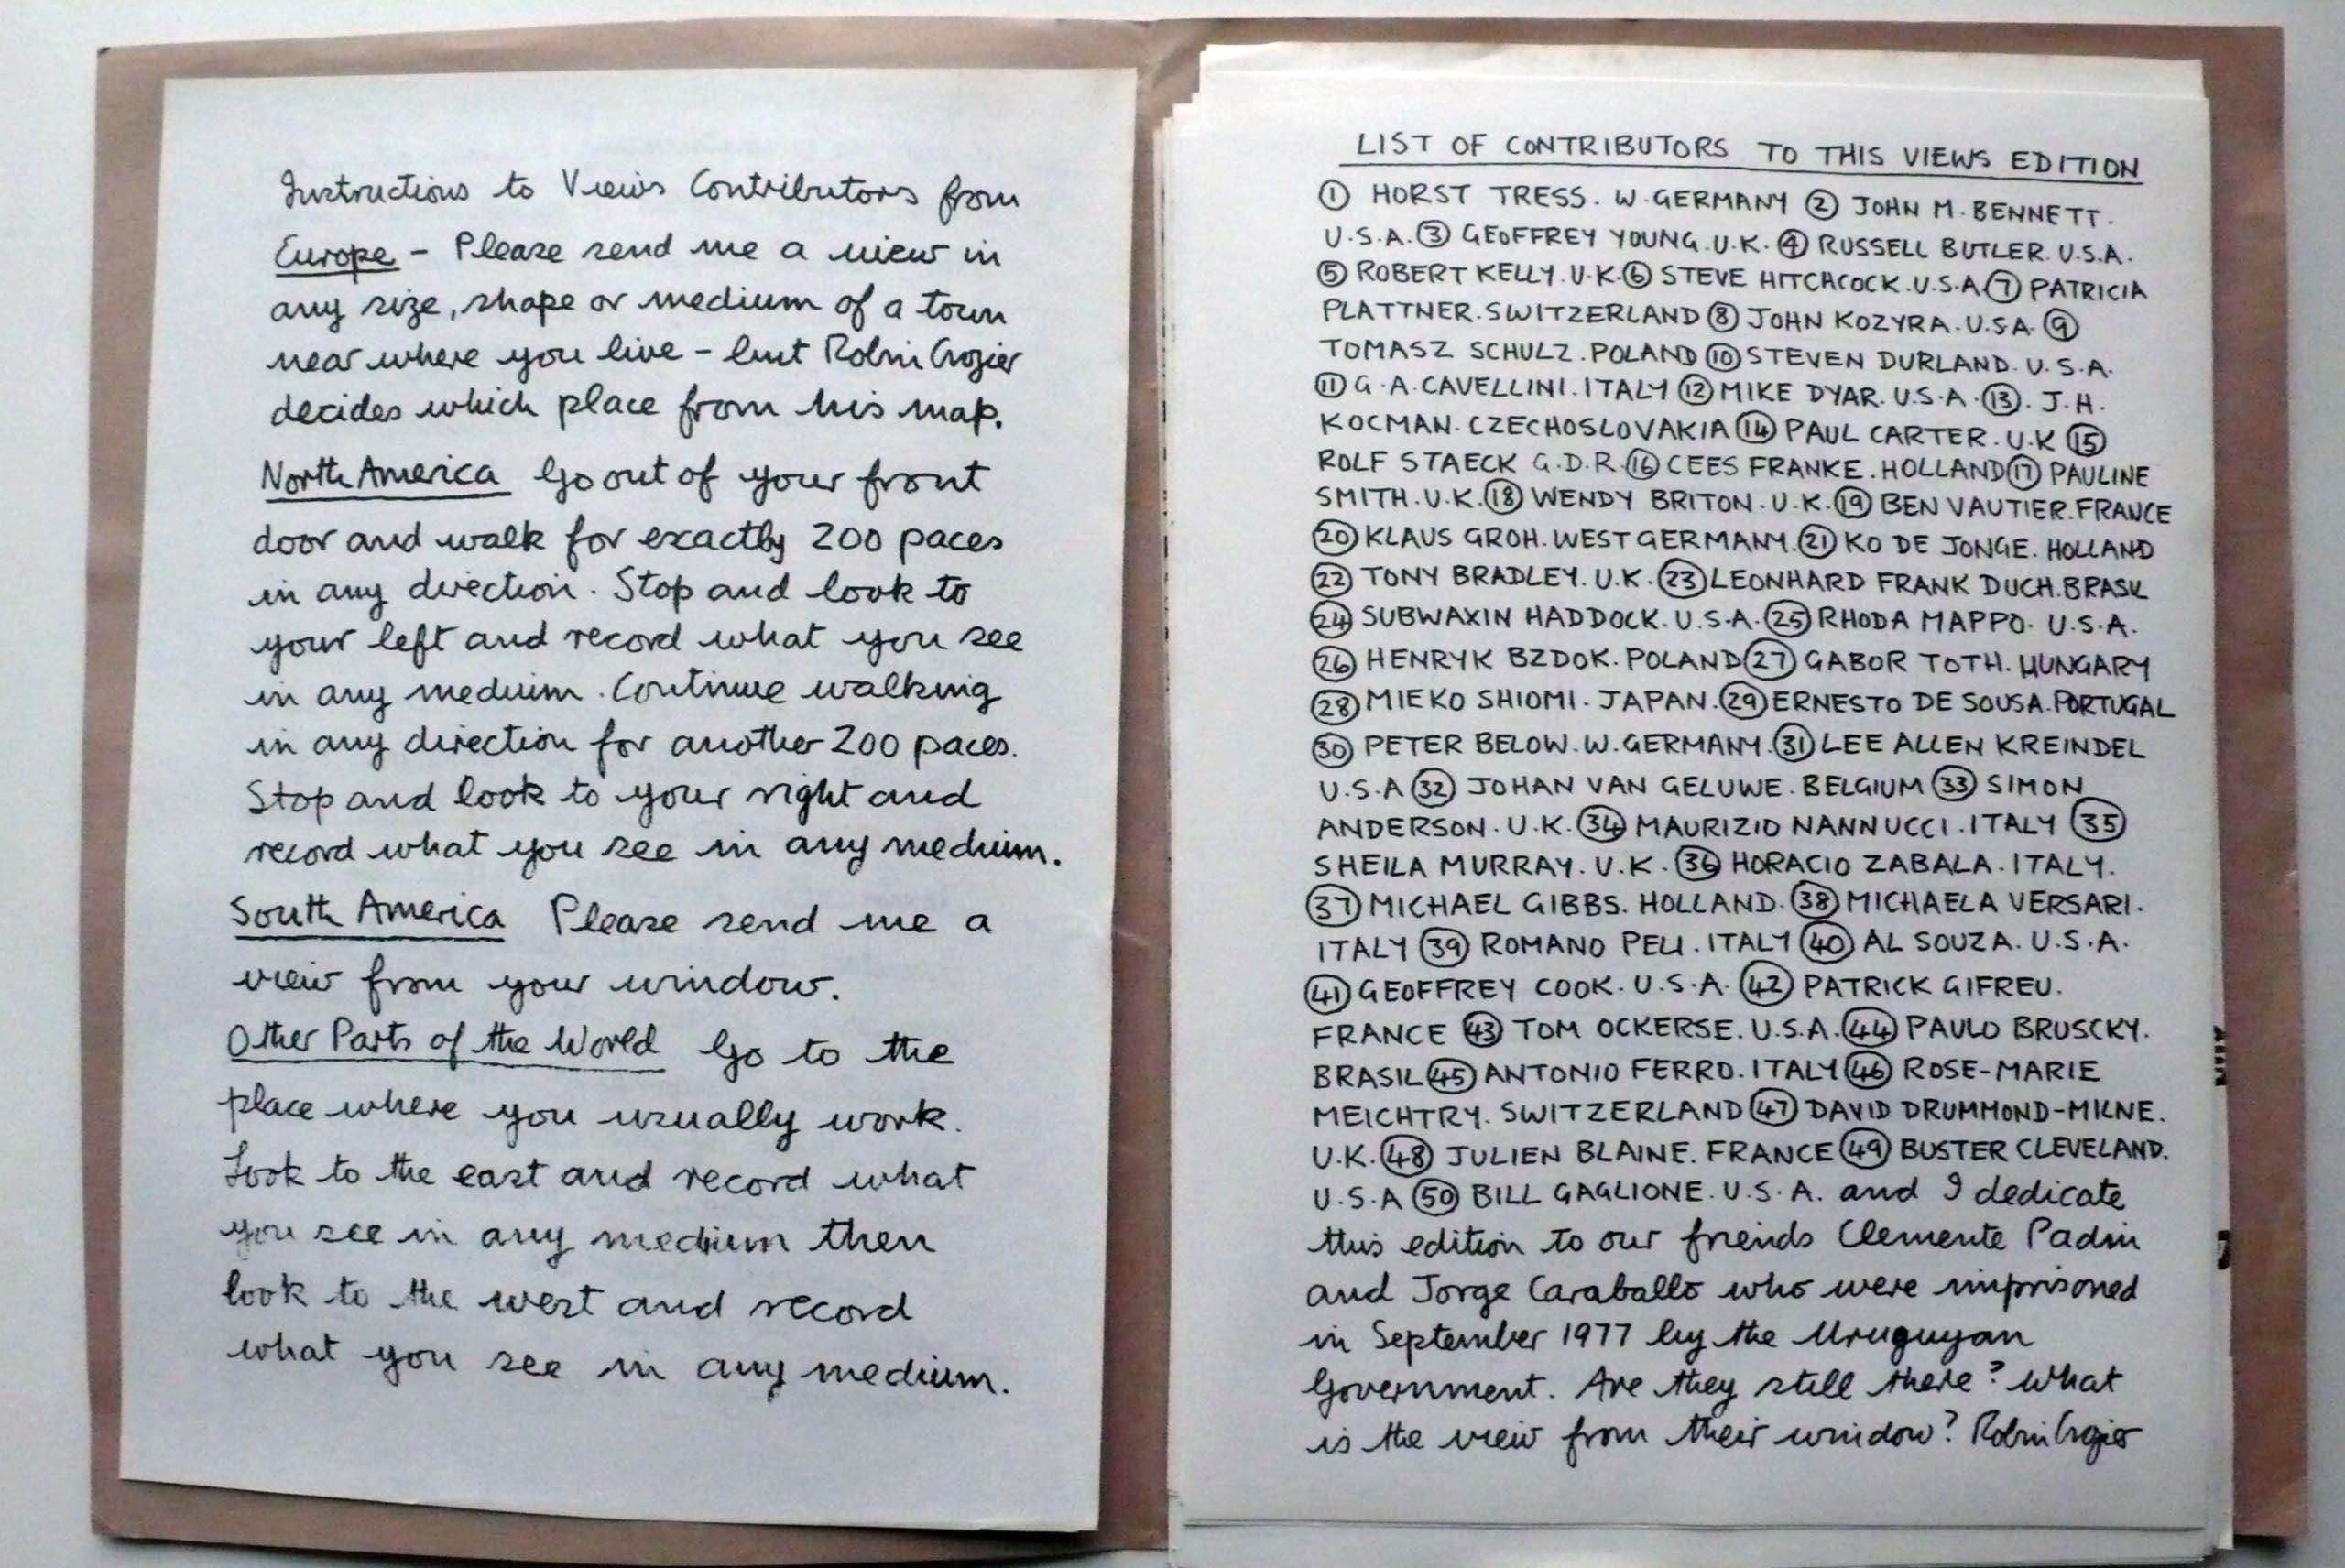 Instructions to Views Contributors from
Europe - Please send me a view in
any size, shape or medium of a town
near where you live - but Robin Crozier
decides which place from his map.
North America Go out of your front
door and walk for exactly 200 paces
in any direction. Stop and look to
your left and record what you see
in any medium. Continue walking
in any direction for another 200 paces.
Stop and look to your right and
record what you see in any medium.
South America Please send me a
view from your window.
Other Parts of the World Go to the
place where you usually work.
Look to the east and record what
you see in any medium then
look to the west and record
what you see in any medium.
LIST OF CONTRIBUTORS TO THIS VIEWS EDITION
① HORST TRESS. W. GERMANY ② JOHN M. BENNETT.
U.S.A. ③ GEOFFREY YOUNG. U.K. ④ RUSSELL BUTLER. U.S.A.
⑤ ROBERT KELLY. U.K. ⑥ STEVE HITCHCOCK. U.S.A ⑦ PATRICIA
PLATTNER. SWITZERLAND ⑧ JOHN KOZYRA. U.S.A. ⑨
TOMASZ SCHULZ. POLAND ⑩ STEVEN DURLAND. U.S.A.
⑪ G.A. CAVELLINI. ITALY ⑫ MIKE DYAR. U.S.A. ⑬. J.H.
KOCMAN. CZECHOSLOVAKIA ⑭ PAUL CARTER. U.K ⑮
ROLF STAECK G.D.R. ⑯ CEES FRANKE. HOLLAND ⑰ PAULINE
SMITH. U.K. ⑱ WENDY BRITON. U.K. ⑲ BEN VAUTIER. FRANCE
⑳ KLAUS GROH. WEST GERMANY. ㉑ KO DE JONGE. HOLLAND
㉒ TONY BRADLEY. U.K. ㉓ LEONHARD FRANK DUCH. BRASIL
㉔ SUBWAXIN HADDOCK. U.S.A. ㉕ RHODA MAPPO. U.S.A.
㉖ HENRYK BZDOK. POLAND ㉗ GABOR TOTH. HUNGARY
㉘ MIEKO SHIOMI. JAPAN. ㉙ ERNESTO DE SOUSA. PORTUGAL
㉚ PETER BELOW. W. GERMANY. ㉛ LEE ALLEN KREINDEL
U.S.A ㉜ JOHAN VAN GELUWE. BELGIUM ㉝ SIMON
ANDERSON. U.K. ㉞ MAURIZIO NANNUCCI. ITALY ㉟
SHEILA MURRAY. U.K. ㊱ HORACIO ZABALA. ITALY.
㊲ MICHAEL GIBBS. HOLLAND. ㊳ MICHAELA VERSARI.
ITALY ㊴ ROMANO PELI. ITALY ㊵ AL SOUZA. U.S.A.
㊶ GEOFFREY COOK. U.S.A. ㊷ PATRICK GIFREU.
FRANCE ㊸ TOM OCKERSE. U.S.A. ㊹ PAULO BRUSCKY.
BRASIL ㊺ ANTONIO FERRO. ITALY ㊻ ROSE-MARIE
MEICHTRY. SWITZERLAND ㊼ DAVID DRUMMOND-MILNE.
U.K. ㊽ JULIEN BLAINE. FRANCE ㊾ BUSTER CLEVELAND.
U.S.A ㊿ BILL GAGLIONE. U.S.A. and I dedicate
this edition to our friends Clemente Padin
and Jorge Caraballo who were imprisoned
in September 1977 by the Uruguyan
Government. Are they still there? What
is the view from their window? Robin Crozier